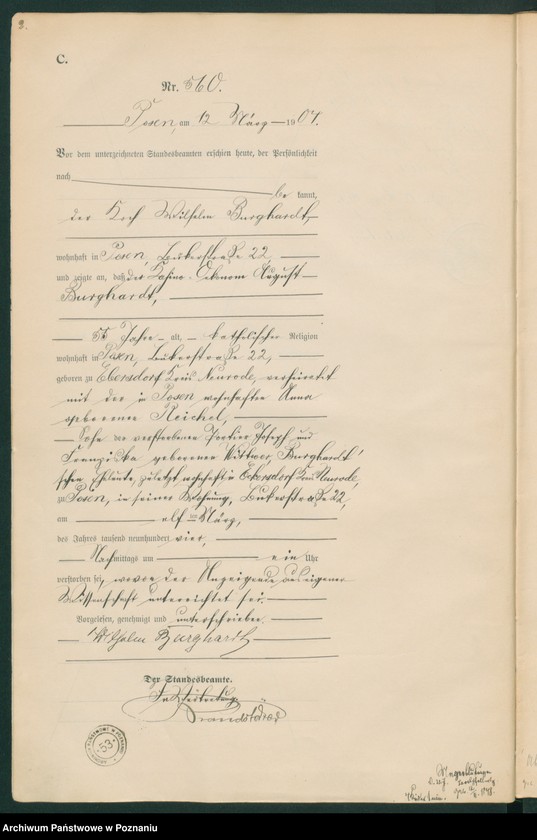 C.
Nr. 560.
Posen, am 12 März 1904.
Vor dem unterzeichneten Standesbeamten erschien heute, der Persönlichkeit
nach be kannt,
der Koch Wilhelm Burghardt,
wohnhaft in Posen, Bukerstraße 22,
und zeigte an, daß der Kasino-Oekonom August
Burghardt,
56 Jahre alt, katholischer Religion
wohnhaft in Posen, Bukerstraße 22,
geboren zu Ebersdorf Kreis Neurode, verheiratet
mit der in Posen wohnhaften Anna
geborenen Reichel,
Sohn der verstorbenen Joseph und
Franziska geborener Wittwer, Burghardt'
schen Eheleute, zuletzt wohnhaft in Ebersdorf Kreis Neurode,
zu Posen, in seiner Wohnung, Bukerstraße 22,
am elf ten März,
des Jahres tausend neunhundert vier,
Nachmittags um ein Uhr
verstorben sei, wovon der Anzeigende aus eigener
Wissenschaft unterrichtet sei.
Vorgelesen, genehmigt und unterschrieben
Wilhelm Burghardt
Der Standesbeamte.
In Vertretung
ARCHIWUM PAŃSTWOWE W POZNANIU
53
Archiwum Państwowe w Poznaniu